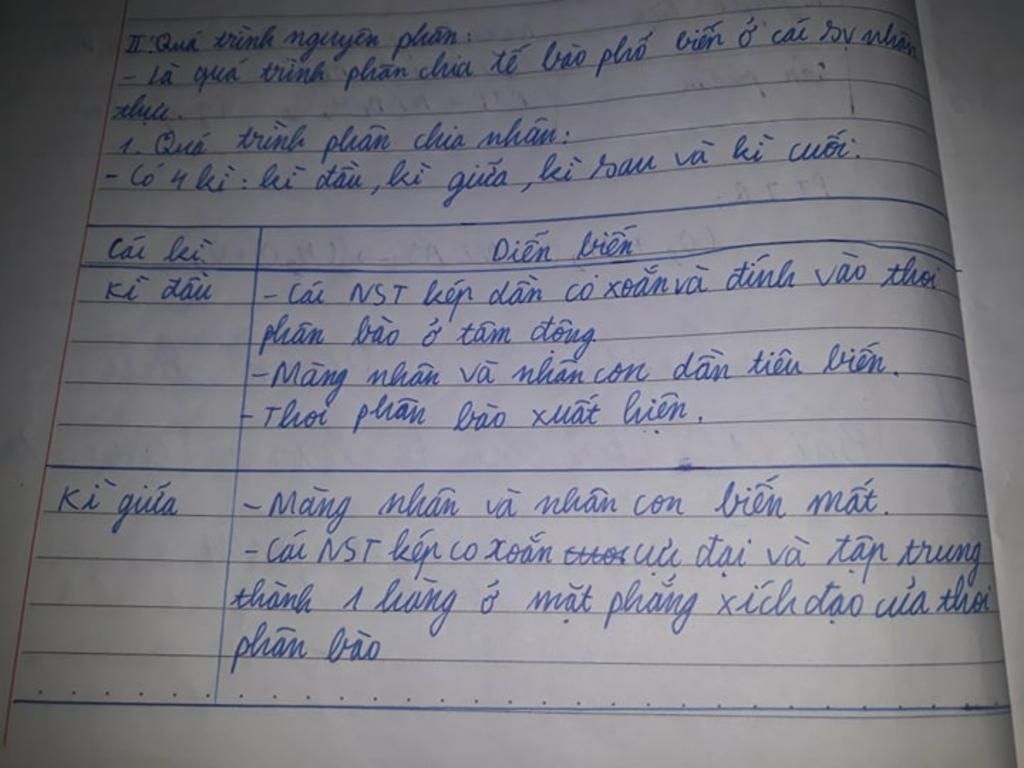 II. Quá trình nguyên phân:
- Là quá trình phân chia tế bào phổ biến ở cái SV nhân
thực.
1. Quá trình phân chia nhân:
- Có 4 kì: kì đầu, kì giữa, kì sau và kì cuối.
Cái kì Diến biến
Kì đầu - Cái NST kép dần co xoắn và đính vào thoi
phân bào ở tâm động
- Màng nhân và nhân con dần tiêu biến.
- Thoi phân bào xuất hiện.
Kì giữa - Màng nhân và nhân con biến mất.
- Cái NST kép co xoắn cực đại và tập trung
thành 1 hàng ở mặt phẳng xích đạo của thoi
phân bào